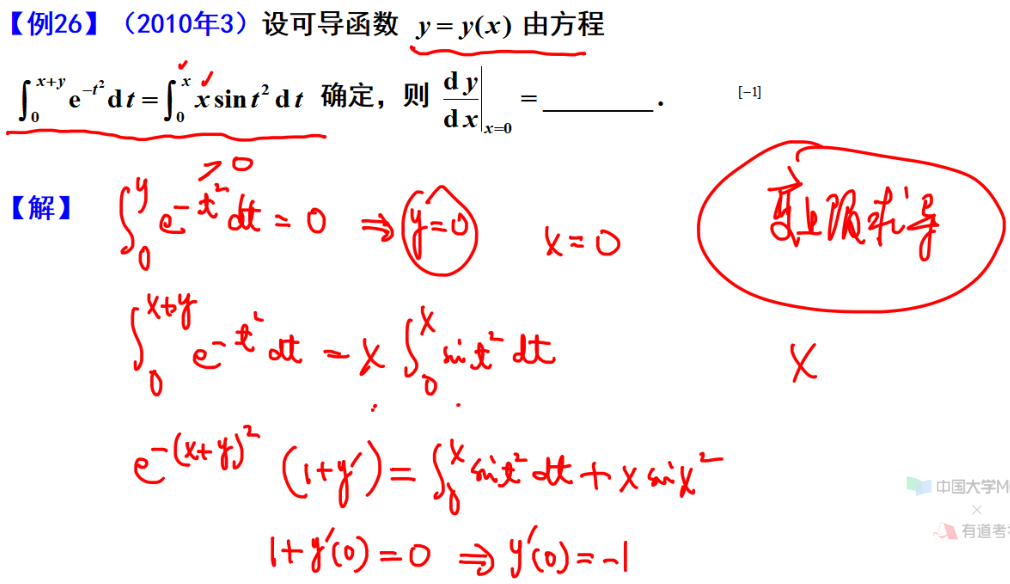 【例26】（2010年3）设可导函数 y = y(x) 由方程
∫₀^{x+y} e^{-t²} dt = ∫₀^x x sin t² dt 确定，则 dy/dx|_{x=0} = ________. [-1]
> 0
【解】 ∫₀^y e^{-t²} dt = 0 ⇒ y=0 x=0
变上限求导
∫₀^{x+y} e^{-t²} dt = x ∫₀^x sin t² dt
x
e^{-(x+y)²} (1+y′) = ∫₀^x sin t² dt + x sin x²
1+y′(0) = 0 ⇒ y′(0) = -1
中国大学M
×
有道考